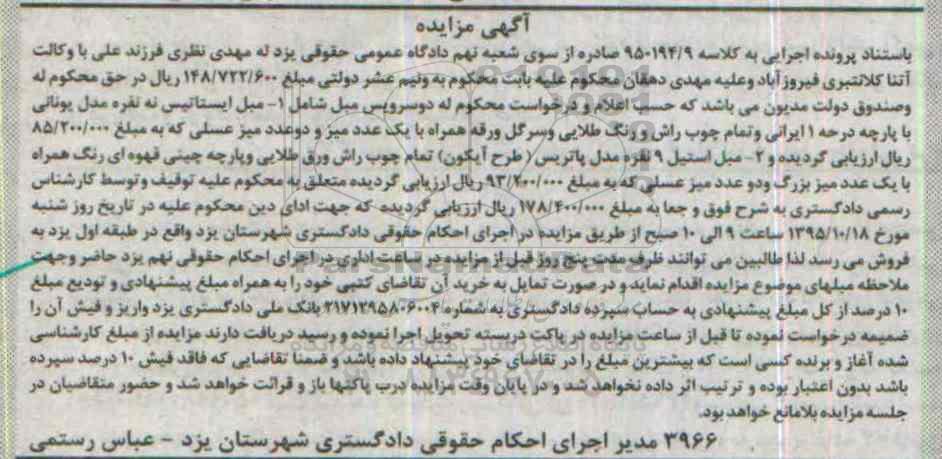 آگهی مزایده
باستناد پرونده اجرایی به کلاسه ۹۵۰۱۹۴/۹ صادره از سوی شعبه نهم دادگاه عمومی حقوقی یزد له مهدی نظری فرزند علی با وکالت
آتنا کلانتبری فیروزآباد وعلیه مهدی دهقان محکوم علیه بابت محکوم به ونیم عشر دولتی مبلغ ۱۴۸/۷۲۲/۶۰۰ ریال در حق محکوم له
وصندوق دولت مدیون می باشد که حسب اعلام و درخواست محکوم له دوسرویس مبل شامل ۱- مبل ایستاتیس نه نفره مدل یونانی
با پارچه درجه ۱ ایرانی وتمام چوب راش و رنگ طلایی وسرگل ورقه همراه با یک عدد میز و دوعدد میز عسلی که به مبلغ ۸۵/۲۰۰/۰۰۰
ریال ارزیابی گردیده و ۲- مبل استیل ۹ نفره مدل پاتریس( طرح آیکون) تمام چوب راش ورق طلایی وپارچه چینی قهوه ای رنگ همراه
با یک عدد میز بزرگ ودو عدد میز عسلی که به مبلغ ۹۳/۲۰۰/۰۰۰ ریال ارزیابی گردیده متعلق به محکوم علیه توقیف وتوسط کارشناس
رسمی دادگستری به شرح فوق و جمعا به مبلغ ۱۷۸/۴۰۰/۰۰۰ ریال ارزیابی گردیده که جهت ادای دین محکوم علیه در تاریخ روز شنبه
مورخ ۱۳۹۵/۱۰/۱۸ ساعت ۹ الی ۱۰ صبح از طریق مزایده در اجرای احکام حقوقی دادگستری شهرستان یزد واقع در طبقه اول یزد به
فروش می رسد لذا طالبین می توانند ظرف مدت پنج روز قبل از مزایده در ساعت اداری در اجرای احکام حقوقی نهم یزد حاضر وجهت
ملاحظه مبلهای موضوع مزایده اقدام نماید و در صورت تمایل به خرید آن تقاضای کتبی خود را به همراه مبلغ پیشنهادی و تودیع مبلغ
۱۰ درصد از کل مبلغ پیشنهادی به حساب سپرده دادگستری به شماره ۲۱۷۱۲۹۵۸۰۶۰۰۲ بانک ملی دادگستری یزد واریز و فیش آن را
ضمیمه درخواست نموده تا قبل از ساعت مزایده در پاکت دربسته تحویل اجرا نموده و رسید دریافت دارند مزایده از مبلغ کارشناسی
شده آغاز و برنده کسی است که بیشترین مبلغ را در تقاضای خود پیشنهاد داده باشد و ضمنا تقاضایی که فاقد فیش ۱۰ درصد سپرده
باشد بدون اعتبار بوده و ترتیب اثر داده نخواهد شد و در پایان وقت مزایده درب پاکتها باز و قرائت خواهد شد و حضور متقاضیان در
جلسه مزایده بلامانع خواهد بود.
۳۹۶۶ مدیر اجرای احکام حقوقی دادگستری شهرستان یزد - عباس رستمی
ParsNamadData